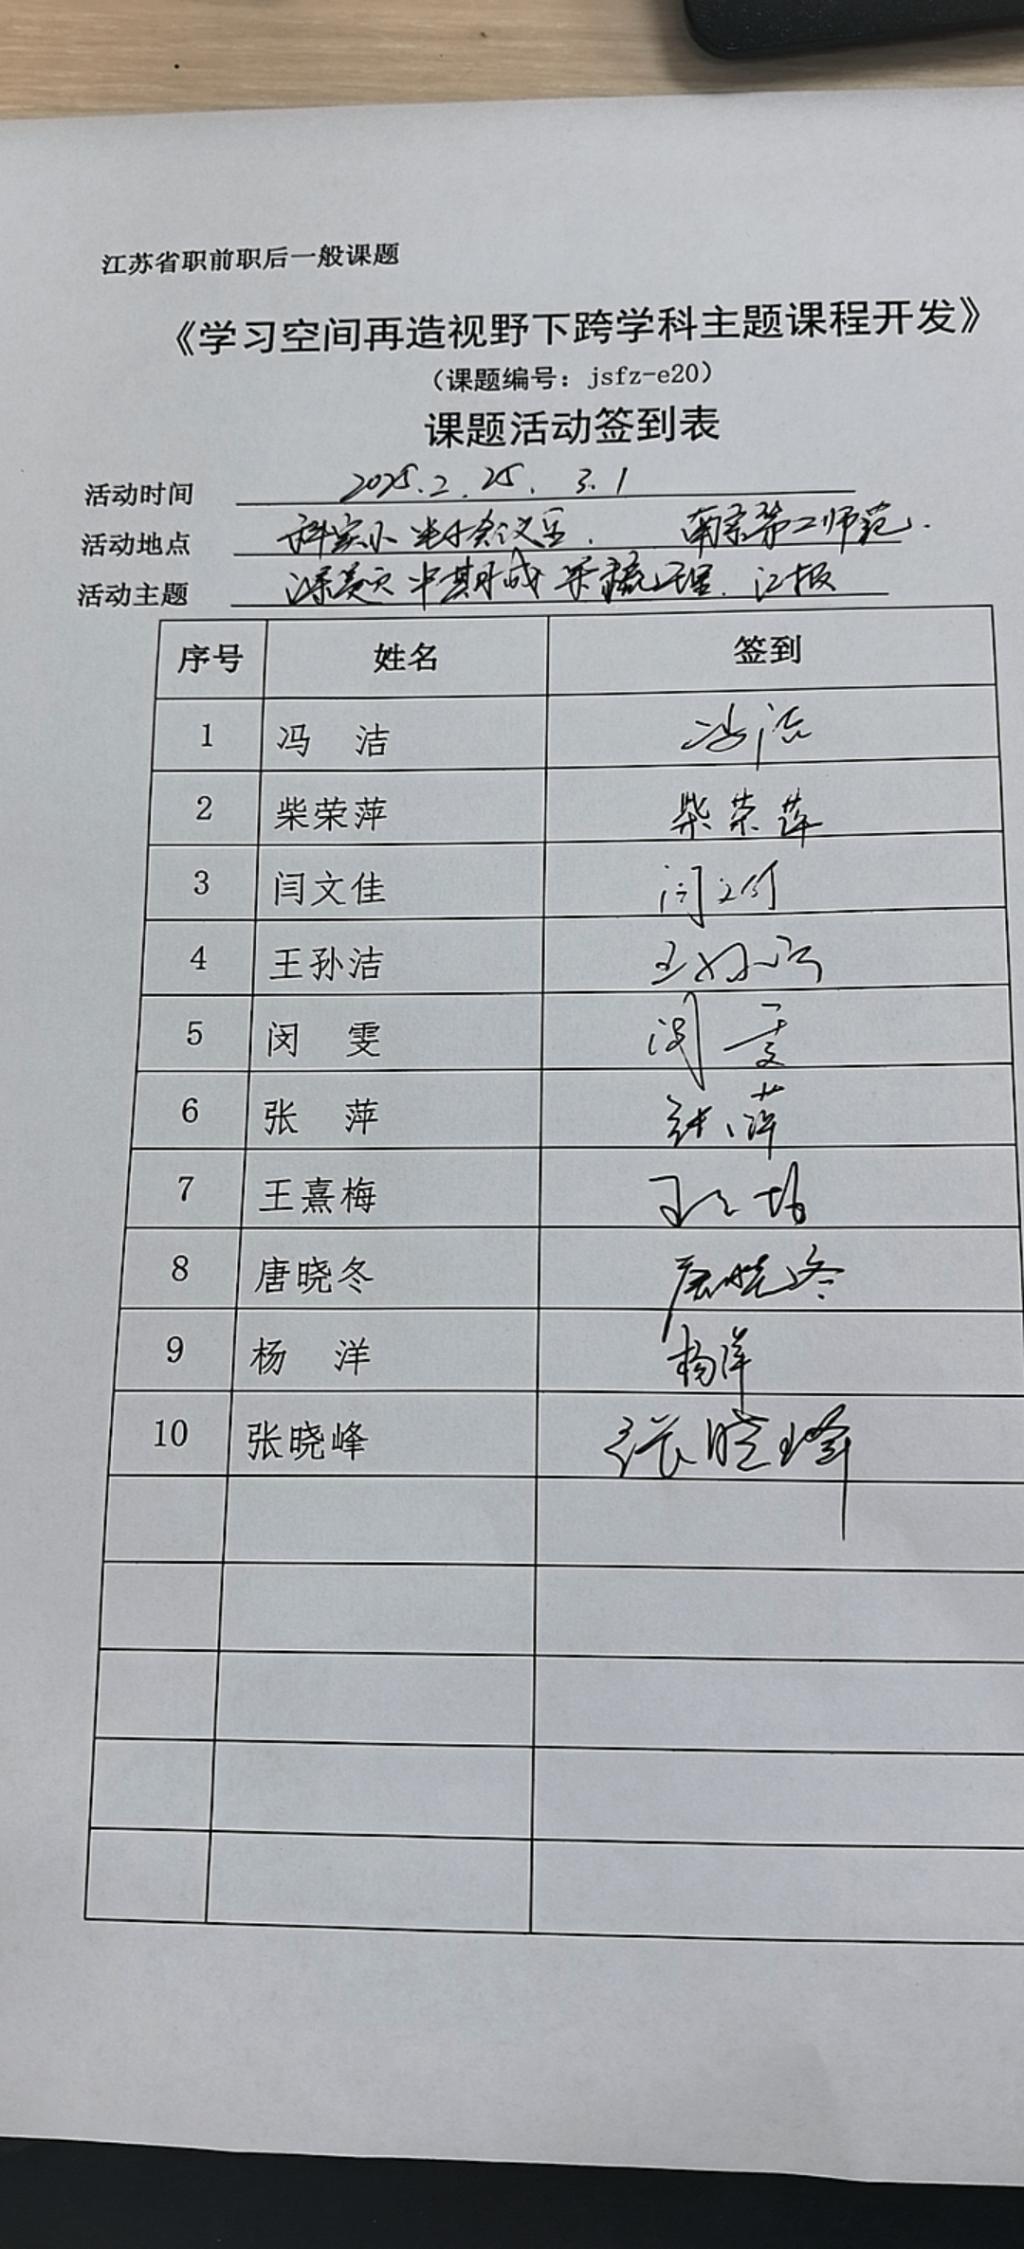 江苏省职前职后一般课题
《学习空间再造视野下跨学科主题课程开发》
（课题编号：jsfz-e20）
课题活动签到表
活动时间 2025.2.25. 3.1
活动地点 科实小 会议室. 南京第二师范.
活动主题 课题中期成果梳理. 汇报
序号 姓名 签到
1 冯 洁 冯洁
2 柴荣萍 柴荣萍
3 闫文佳 闫文佳
4 王孙洁 王孙洁
5 闵 雯 闵雯
6 张 萍 张萍
7 王熹梅
8 唐晓冬 唐晓冬
9 杨 洋 杨洋
10 张晓峰 张晓峰